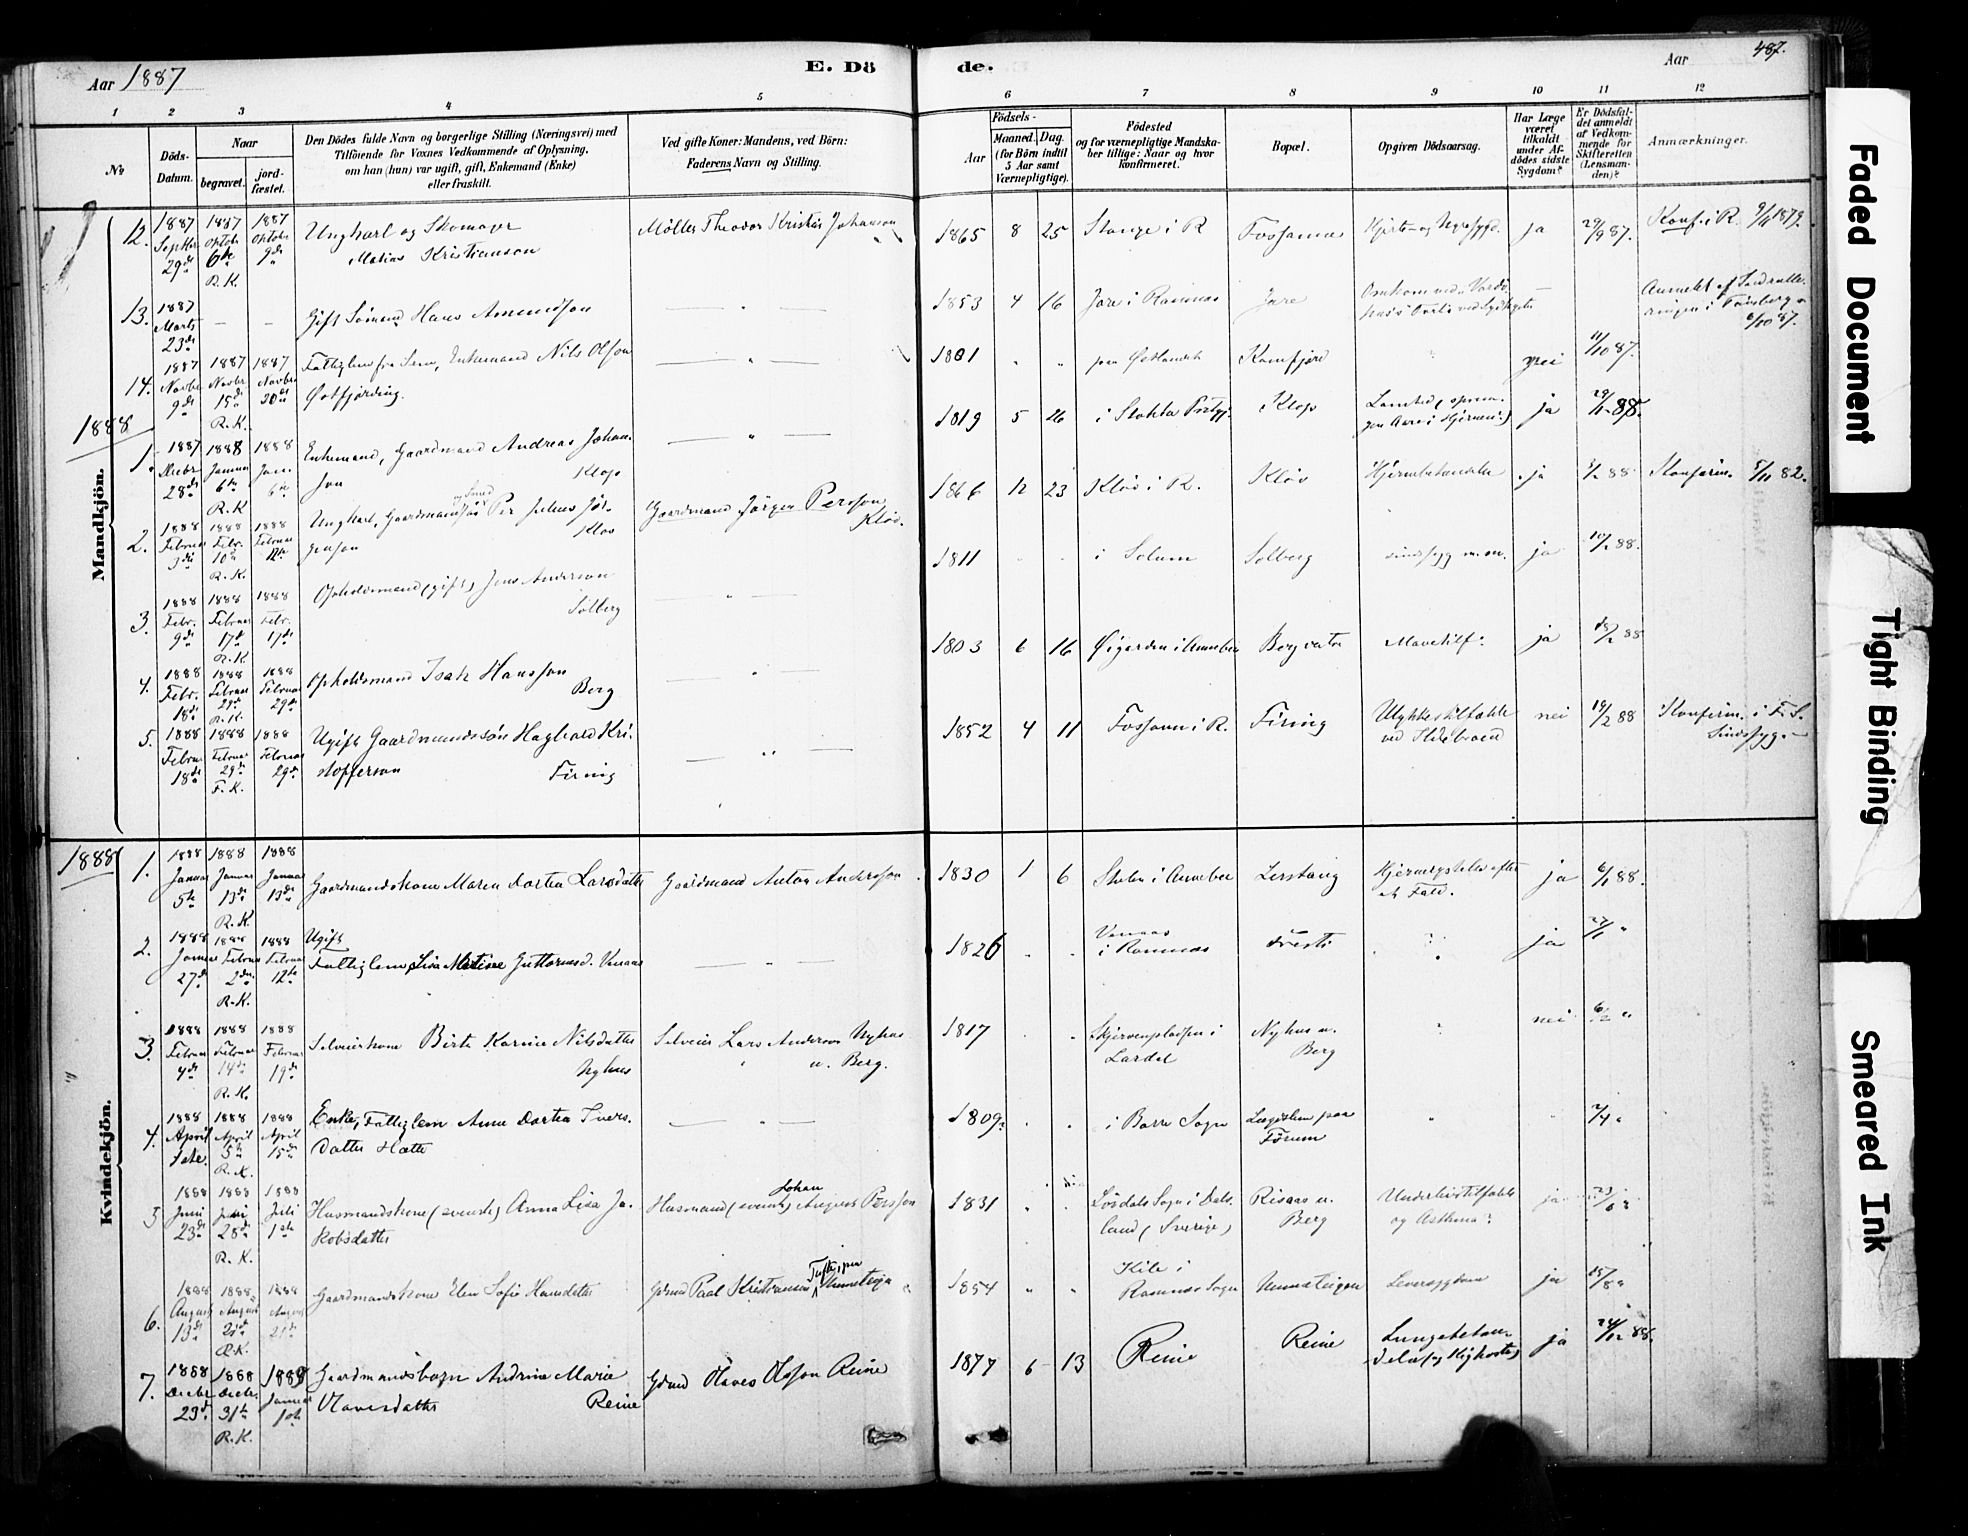 Aar 1887
E. Dö
de.
Aar
487.
1 2 3 4 5 6 7 8 9 10 11 12
No
Döds-
Datum.
Naar
begravet.
jord-
fæstet.
Den Dödes fulde Navn og borgerlige Stilling (Næringsvei) med
Tilföiende for Voxnes Vedkommende af Oplysning,
om han (hun) var ugift, gift, Enkemand (Enke)
eller fraskilt.
Ved gifte Koner: Mandens, ved Börn:
Faderens Navn og Stilling.
Födsels-
Aar
Maaned. Dag.
(for Börn indtil
5 Aar samt
Værnepligtige).
Födested
og for værnepligtige Mandska-
ber tillige: Naar og hvor
konfirmeret.
Bopæl.
Opgiven Dödsaarsag.
Har Læge
været
tilkaldt
under Af-
dödes sidste
Sygdom?
Er Dödsfal-
det anmeldt
af Vedkom-
mende for
Skifteretten
(Lensman-
den)?
Anmærkninger.
Mandkjön.
12. 1887 Septbr 29de 1887 Oktobr 6te R.K. 1887 Oktobr 9de Ungkarl og Skomager Matias Kristianson Möller Theodor Kristian Johanson 1865 8 25 Stange i R Fossanne Hjerte- og Nyresygd. ja 29/9 87. Konf. i R. 9/11 1879.
13. 1887 Marts 23de — — Gift Sömand Hans Amundson — " — 1853 4 16 Jare i Ramnes Jare Omkom ved — 
i Tönsberg
6/10 87.
14. 1887 Novbr 9de 1887 Novbr 15de R.K. 1887 Novbr 20de Fattiglem fra Sem, Enkemand Nils Olson
Östfjording. — " — 1801 " " paa Östlandet Kamfjord " nei 11/10 87.
1888
1. 1887 Decbr 28de 1888 Januar 6te R.K 1888 Jan. 6te Enkemand, Gaardmand Andreas Johan-
son Klop — " — 1819 5 26 i Stokke Prstgj. Klop Lamhed ja 29/1 88.
2. 1888 Februar 3die 1888 Febr. 10de R.K. 1888 Februar 12te Ungkarl, Gaardmandssön og Smed Per Julius Jör-
genson Klöv Gaardmand Jörgen Persson
Klöv. 1866 12 23 Klöv i R. Klöv Hjernebetændelse ja 3/2 88 Konfirm. 5/11 82.
3. 1888 Febr. 9de 1888 Februar 17de R.K 1888 Febr. 17de Opholdsmand (gift) Jens Anderson
Solberg — " — 1811 " " i Solum Solberg sindssyg m.m. ja 10/2 88.
4. 1888 Febr. 18de 1888 Februar 29de R.K. 1888 Februar 29de Opholdsmand Isak Hansson
Berg — " — 1803 6 16 Öigarden i Anneber Berg vestre Mavetilf: ja 18/2 88
5. 1888 Februar 18de 1888 Februar 29de F.K. 1888 Februar 29de Ugift Gaardmandssön Hagbard Kri-
stofferson Firing — " — 1852 4 11 Fossann i R. Firing Ulykkestilfælde
ved Ildebrand nei 19/2 88 Konfirm. i F.S.
Sindssyg.
Kvindekjön.
1888
1. 1888 Januar 5te 1888 Januar 13de R.K. 1888 Januar 13de Gaardmandskone Maren Dortea Larsdatter Gaardmand Anton Anderson 1830 1 6 i Anneber Lerstang Hjernerystelse efter
et Fald. ja 6/1 88.
2. 1888 Januar 27de 1888 Februar 2den R.K. 1888 Februar 12te Ugift
Fattiglem Lisa Matine Guttormsd. Venaas — " — 1826 " " Venaas
i Ramnes ? ja 27/1 "
3. 1888 Februar 4de 1888 Februar 14de R.K. 1888 Februar 19de Selveierkone Birte Karine Nilsdatter
Nyhus Selveier Lars Anderson Nyhus
u. Berg. 1817 " " Skjervenpladsen i
Lardal Nyhus u.
Berg ? nei 6/2 "
4. 1888 April 1ste. 1888 April 5te R.K. 1888 April 15de Enke, Fattiglem Anne Dortea Ivers-
Datter Hotte — " — 1809 " " i Borre Sogn Lægdslem paa
Förum " " 2/4 "
5 1888 Juni 23de 1888 Juni 28de R.K. 1888 Juli 1ste Husmandskone (svensk) Anna Lisa Ja-
kobsdatter Husmand (svensk) Johan August Persson 1831 " " Lösdals Sogn i Dals-
land (Sverige) Risaas u.
Berg Underlivstilfælde
og Asthma? ja 23/6 "
6. 1888 August 13de 1888 August 21de R.K. 1888 August 21de Gaardmandskone Elen Sofie Hansdatter Gdmd Paal Kristianson Tufte, paa Unneteigen 1854 " " Kile i
Ramnes Sogn Unneteigen Leversygdom ja 15/8 "
7. 1888 Decbr 23de 1888 Decbr. 31te R.K. 1889 Januar 1ste Gaardmandsbarn Andrine Marie
Olavesdatter Reine Gdmd Olaves Olsson Reine 1877 6 13 Reine Reine Lungebetæn-
delse og Kighoste ja 24/12 88.
Faded Document
Tight Binding
Smeared Ink